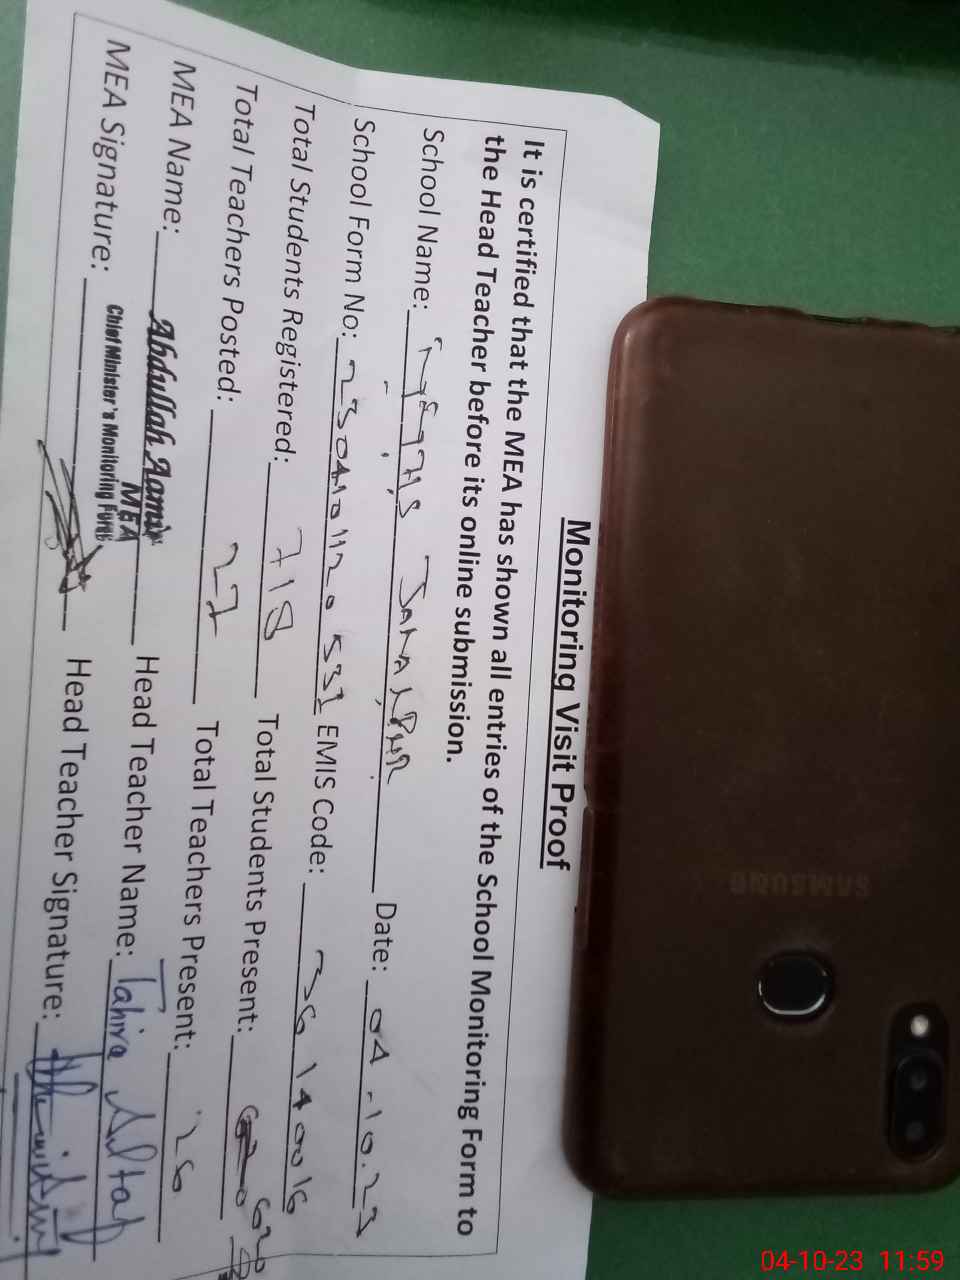 Monitoring Visit Proof
It is certified that the MEA has shown all entries of the School Monitoring Form to
the Head Teacher before its online submission.
School Name: Date: 04.10.23
School Form No: EMIS Code:
Total Students Registered: 718 Total Students Present: 620
Total Teachers Posted: 27 Total Teachers Present: 26
MEA Name: Abdullah Aamir Head Teacher Name: Tahira Altaf
MEA
Chief Minister's Monitoring Force
MEA Signature: Head Teacher Signature:
SAMSUNG
04-10-23 11:59